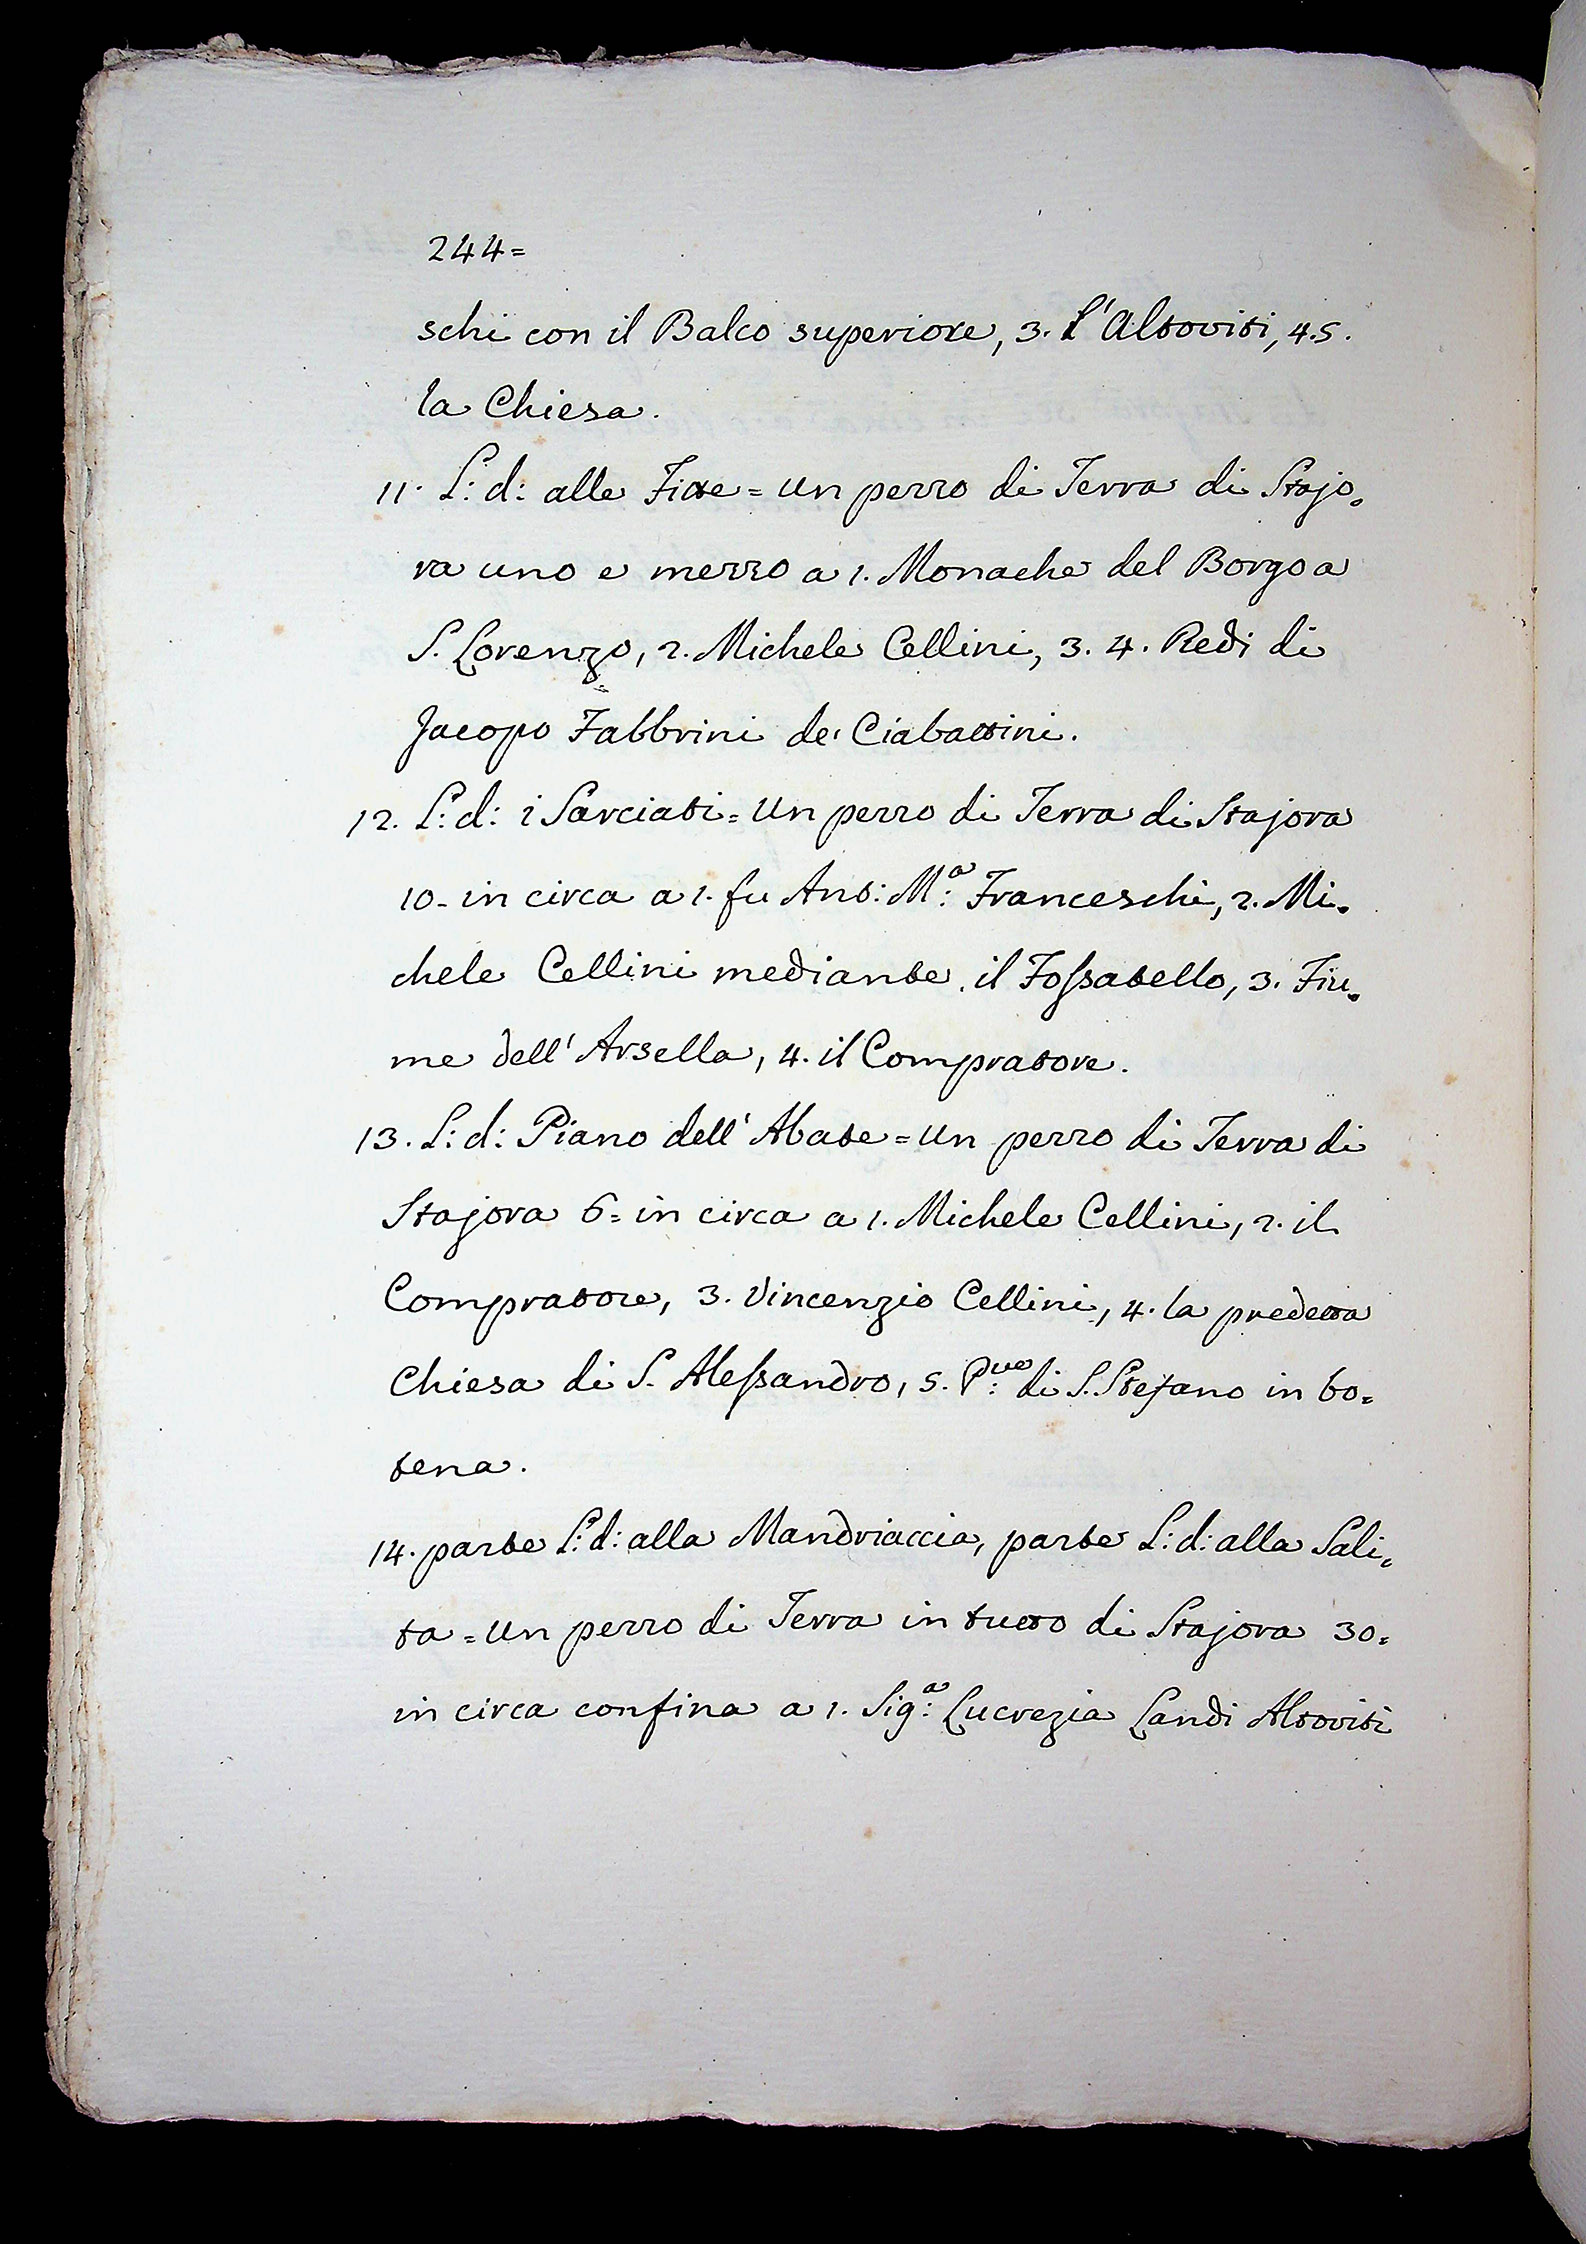 244=
schi con il Balco superiore, 3. l'Altoviti, 4.5.
la Chiesa.
11. L: d: alle Fitte = Un pezzo di Terra di Stajo=
ra uno e mezzo a 1. Monache del Borgo a
S. Lorenzo, 2. Michele Cellini, 3. 4. Redi di
Jacopo Fabbrini de' Ciabattini.
12. L: d: i Sarciati = Un pezzo di Terra di Stajora
10= in circa a 1. fu Ant: M:ª Franceschi, 2. Mi=
chele Cellini mediante il Fossatello, 3. Fiu=
me dell'Arsella, 4. il Compratore.
13. L: d: Piano dell'Abate = Un pezzo di Terra di
Stajora 6= in circa a 1. Michele Cellini, 2. il
Compratore, 3. Vincenzio Cellini, 4. la predetta
Chiesa di S. Alessandro, 5. P:ve di S. Stefano in bo=
tena.
14. parte L: d: alla Mandriaccia, parte L: d: alla Sali=
ta = Un pezzo di Terra in tutto di Stajora 30=
in circa confina a 1. Sig:ª Lucrezia Landi Altoviti